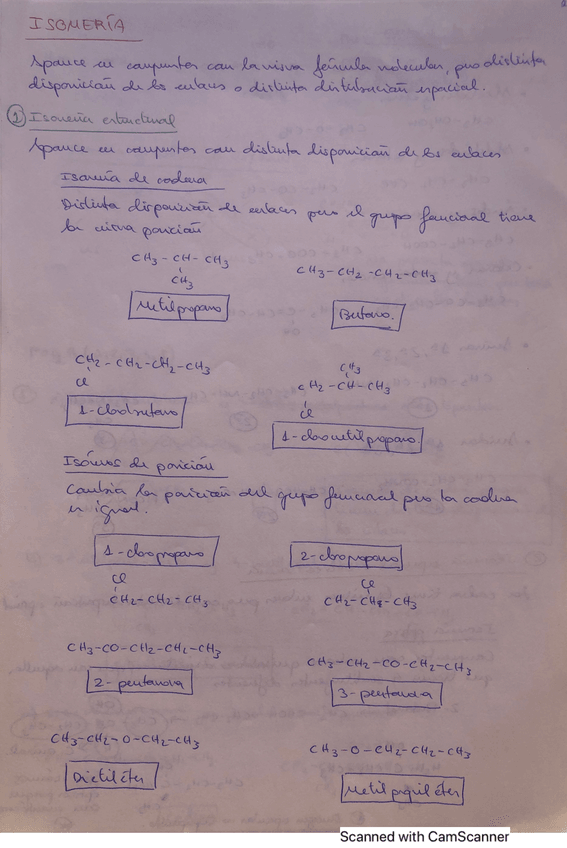 ISOMERÍA
Aparece en compuestos con la misma fórmula molecular, pero distinta
disposición de los enlaces o distinta distribución espacial.
1 Isomería estructural
Aparece en compuestos con distinta disposición de los enlaces
Isomería de cadena
Distinta disposición de enlaces pero el grupo funcional tiene
la misma posición
CH3 - CH - CH3
CH3
Metilpropano
CH3 - CH2 - CH2 - CH3
Butano.
CH2 - CH2 - CH2 - CH3
Cl
1-clorobutano
CH3
CH2 - CH - CH3
Cl
1-clorometilpropano
Isómeros de posición
Cambia la posición del grupo funcional pero la cadena
es igual.
1-cloropropano
Cl
CH2 - CH2 - CH3
2-cloropropano
Cl
CH2 - CH2 - CH3
CH3 - CO - CH2 - CH2 - CH3
2-pentanona
CH3 - CH2 - CO - CH2 - CH3
3-pentanona
CH3 - CH2 - O - CH2 - CH3
Dietiléter
CH3 - O - CH2 - CH2 - CH3
Metilpropiléter
Scanned with CamScanner